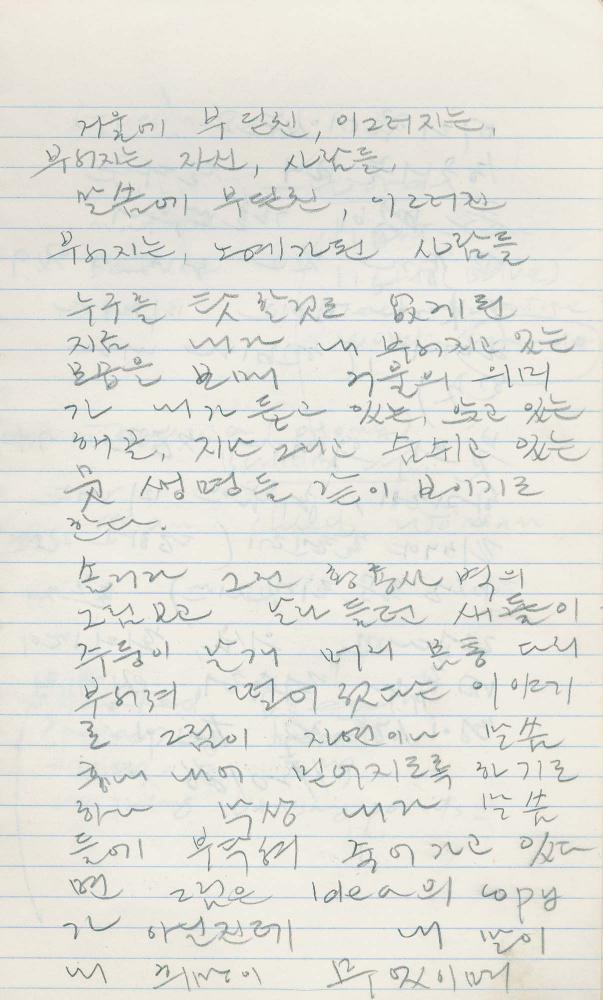 거울에 부딛친, 이그러지는,
부서지는 자신, 사람들,
말씀에 부딛친, 이그러진
부서지는, 노예가된 사람들
누구를 탓 할것도 없게된
지금 내가 내 부서지고 있는
모습을 보며 거울의 의미
가 내가 듣고 있는, 앓고 있는
해골, 지는 그리고 숨쉬고 있는
뭇 생명들 같이 보이기도
한다.
솔거가 그린 황룡사 벽의
그림보고 날라 들던 새들이
주둥이 날개 머리 몸통 다리
부서져 떨어 졌다는 이야기
로 그림이 자연이나 말씀
흉내 내어 믿어지도록 하기도
하나 막상 내가 말씀
들에 부딕혀 죽어가고 있다
면 그림은 Idea의 copy
가 아닐진데 내 말이
내 희망이 무엇이며